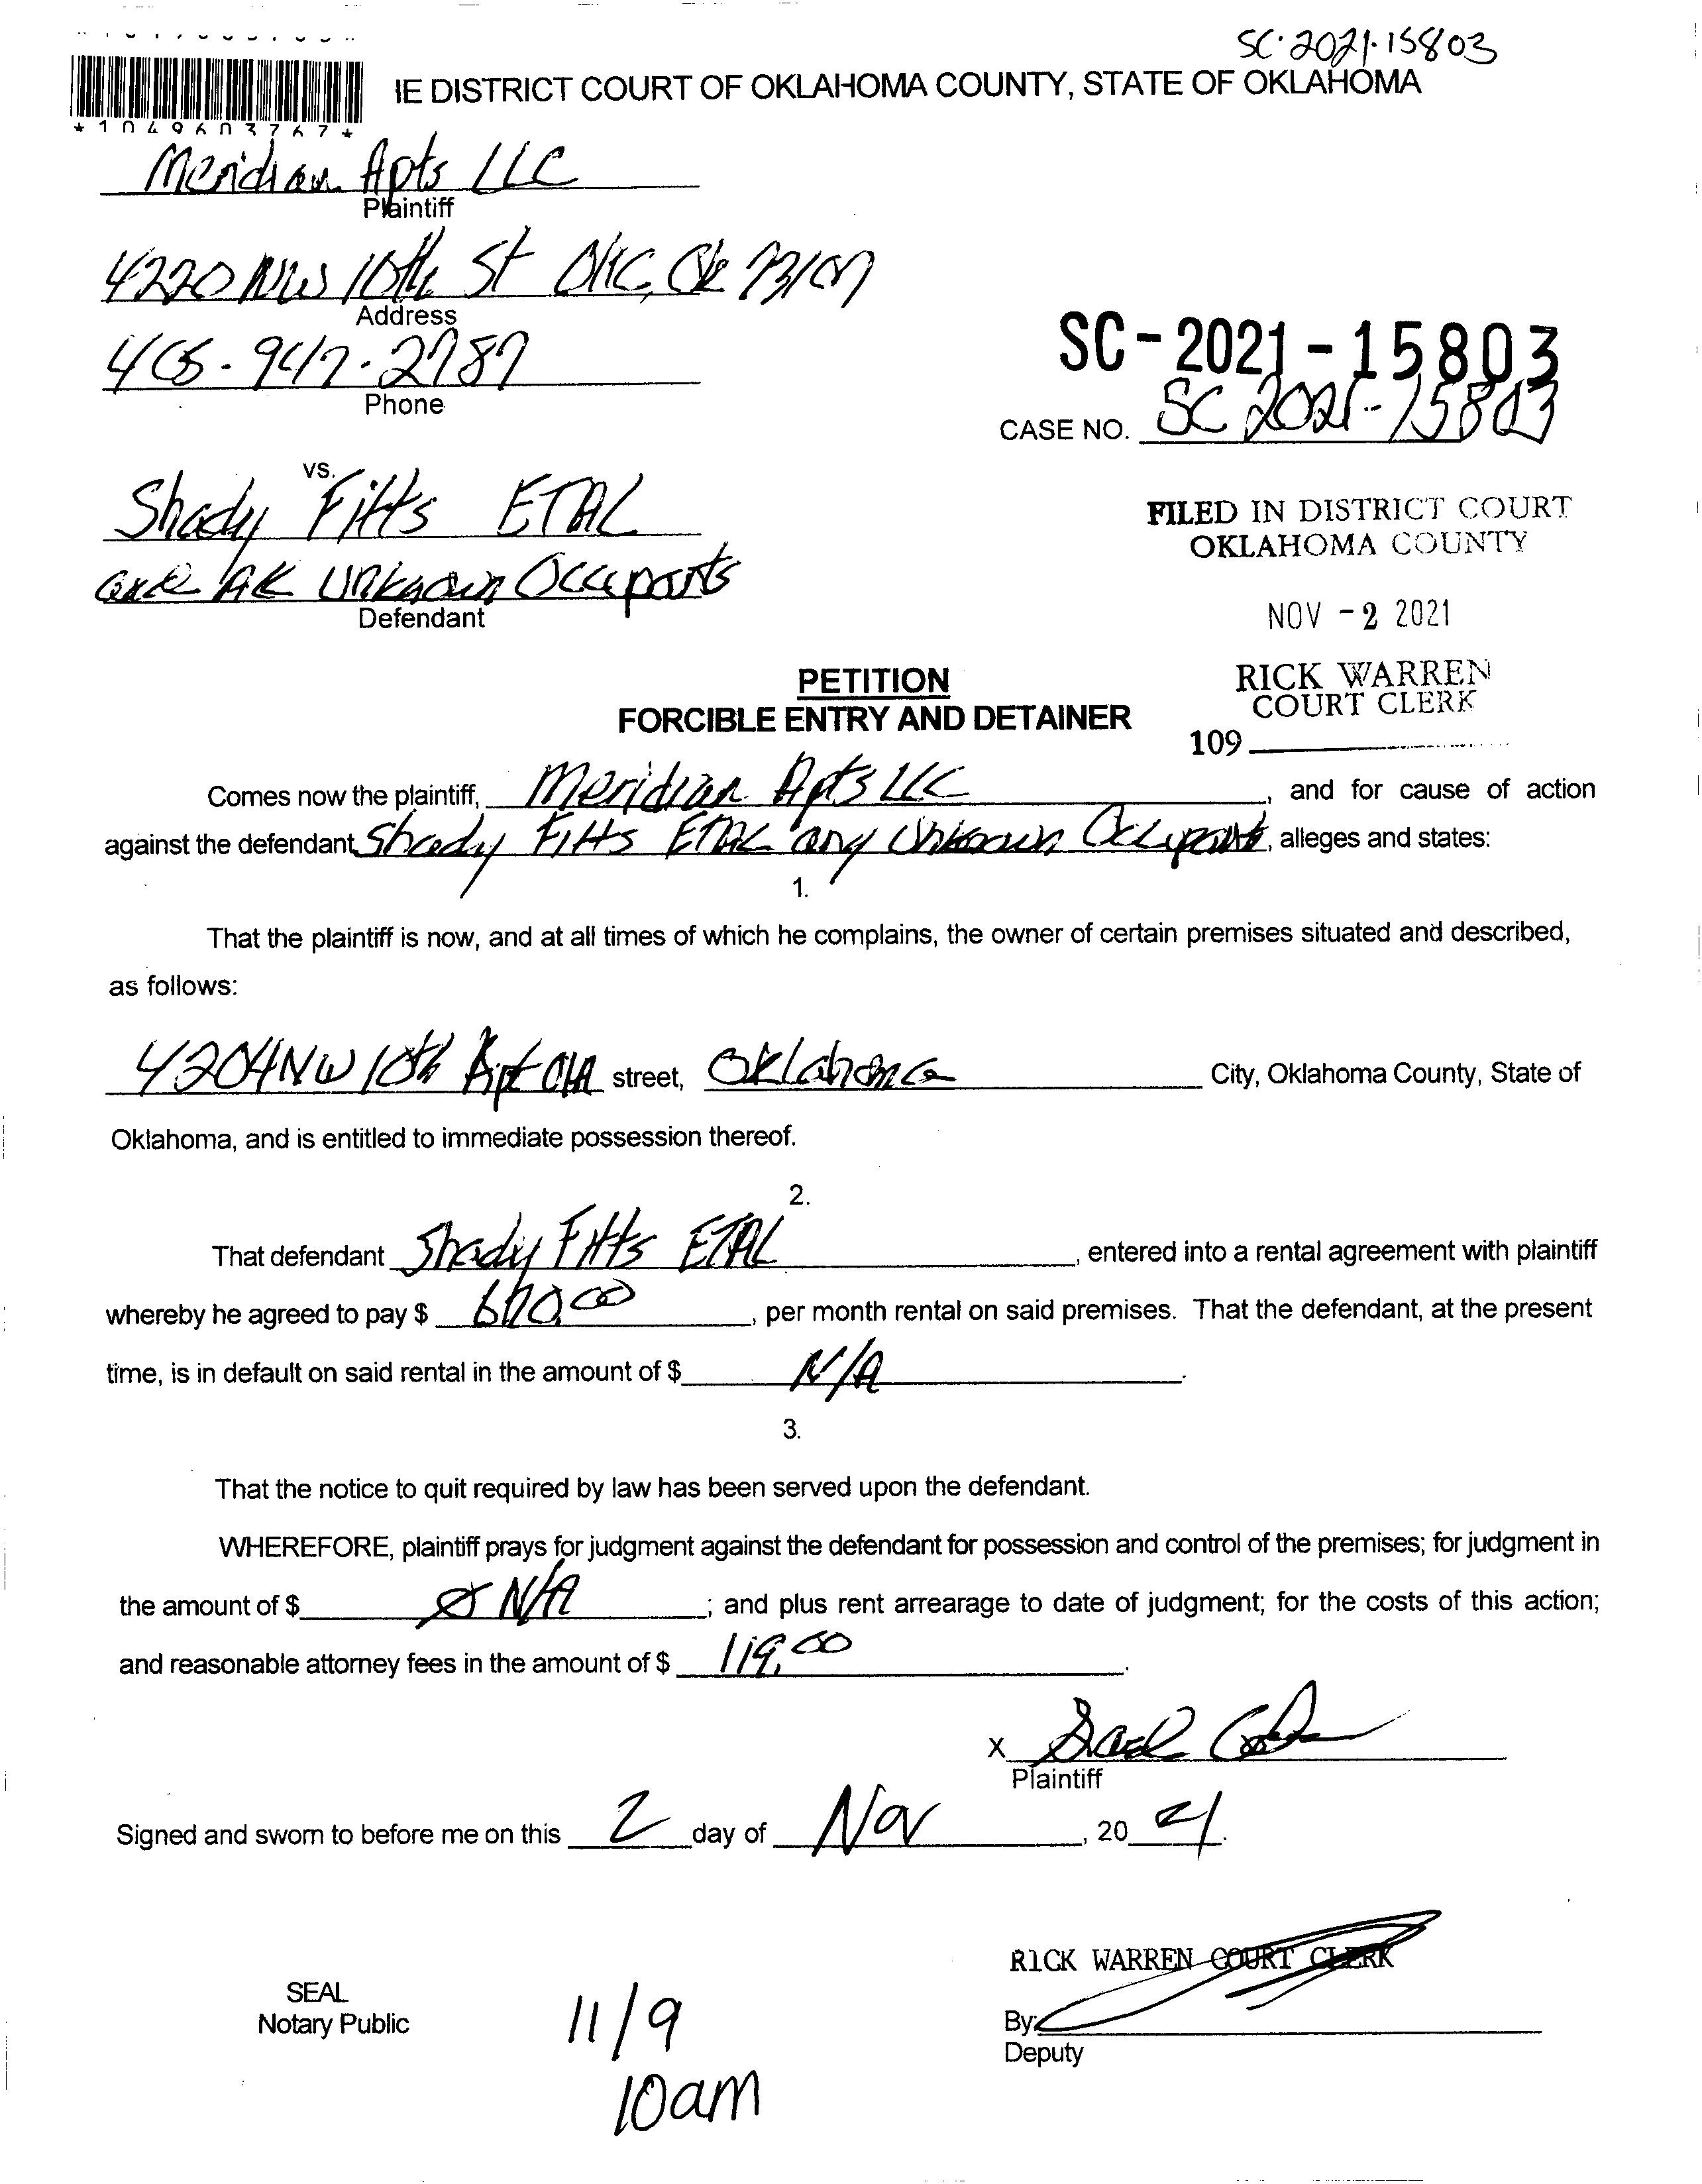 SC-2021-15803
IE DISTRICT COURT OF OKLAHOMA COUNTY, STATE OF OKLAHOMA
*1049603767*
Meridian Apts LLC
Plaintiff
4220 NW 10th St OKC, Ok 73107
Address
405-947-2787
Phone
SC-2021-15803
CASE NO. SC 2021-15803
vs.
Shady Fitts ETAL
and All Unknown Occupants
Defendant
FILED IN DISTRICT COURT
OKLAHOMA COUNTY
NOV -2 2021
RICK WARREN
COURT CLERK
109
PETITION
FORCIBLE ENTRY AND DETAINER
Comes now the plaintiff, Meridian Apts LLC, and for cause of action
against the defendant Shady Fitts ETAL any Unknown Occupant, alleges and states:
1.
That the plaintiff is now, and at all times of which he complains, the owner of certain premises situated and described,
as follows:
4204 NW 10th Apt street, Oklahoma City, Oklahoma County, State of
Oklahoma, and is entitled to immediate possession thereof.
2.
That defendant Shady Fitts ETAL, entered into a rental agreement with plaintiff
whereby he agreed to pay $ 670.00, per month rental on said premises. That the defendant, at the present
time, is in default on said rental in the amount of $ N/A.
3.
That the notice to quit required by law has been served upon the defendant.
WHEREFORE, plaintiff prays for judgment against the defendant for possession and control of the premises; for judgment in
the amount of $ N/A; and plus rent arrearage to date of judgment; for the costs of this action;
and reasonable attorney fees in the amount of $ 119.00.
X
Plaintiff
Signed and sworn to before me on this 2 day of Nov, 20 21.
RICK WARREN COURT CLERK
SEAL
Notary Public
11/9
10am
By:
Deputy